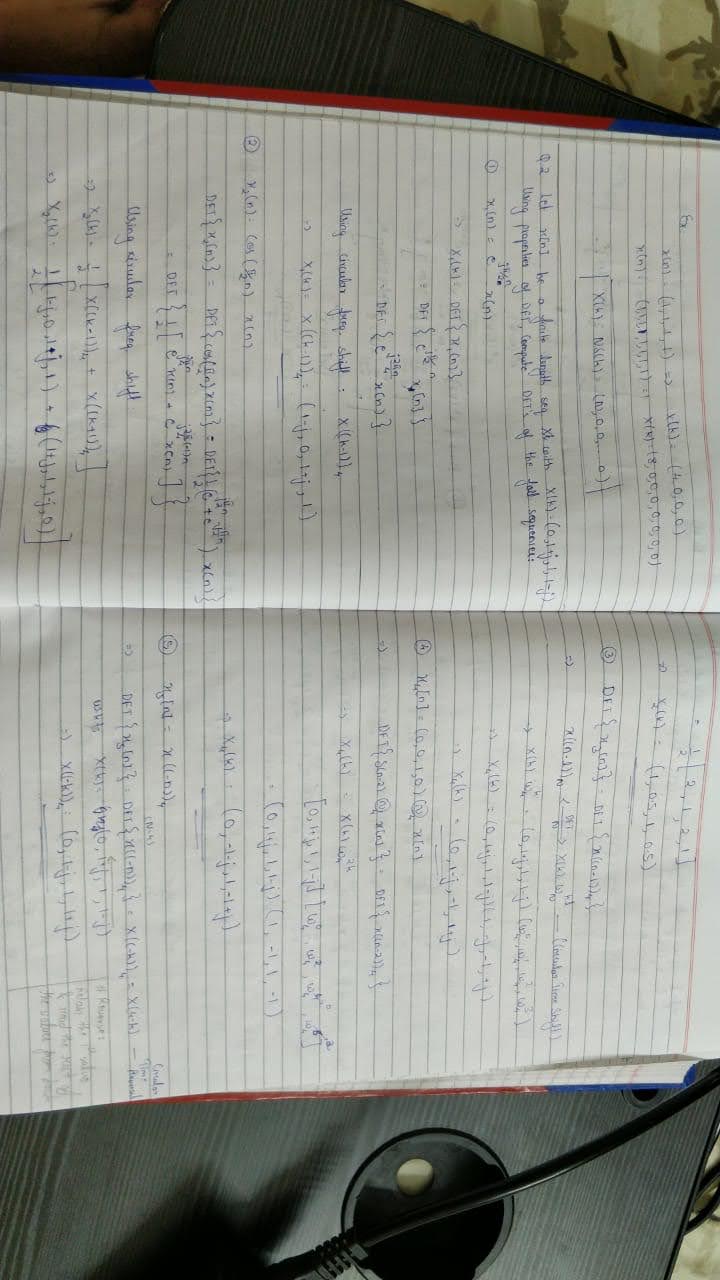 Ex.
x(n) = (1, 1, 1, 1) => X(k) = (4, 0, 0, 0)
x(n) = (1,1,1,1,1,1,1,1) => X(k) = (8,0,0,0,0,0,0,0)
∴ X(k) = Nδ(k) = (N, 0, 0, ... 0)
Q.2 Let x[n] be a finite length seq with X(k) = (0, 1+j, 1, 1-j)
Using properties of DFT, compute DFT's of the foll sequences:
① x₁(n) = e^{jπ/2 n} x(n)
=> X₁(k) = DFT{x₁(n)}
= DFT{e^{jπ/2 n} x[n]}
= DFT{e^{j2π/4 n} x(n)}
Using circular freq shift = X((k-1))₄
=> X₁(k) = X((k-1))₄ = (1-j, 0, 1+j, 1)
② x₂(n) = cos(π/2 n) x(n)
DFT{x₂(n)} = DFT{cos(π/2 n) x(n)} = DFT{1/2 (e^{jπ/2 n} + e^{-jπ/2 n}) x(n)}
= DFT{1/2 [e^{j2π/4 n} x(n) + e^{j2π/4 (-1)n} x(n)]}
Using circular freq shift
=> X₂(k) = 1/2 [X((k-1))₄ + X((k+1))₄]
=> X₂(k) = 1/2 [(1-j, 0, 1+j, 1) + (1+j, 1, 1-j, 0)]
= 1/2 [2, 1, 2, 1]
=> X₂(k) = (1, 0.5, 1, 0.5)
③ DFT{x₃[n]} = DFT{x((n-1))₄}
=> x((n-l))_N <-DFT/N-> X(k) W_N^{kl} — (Circular Time Shift)
→ X(k) W₄^k = (0, 1+j, 1, 1-j) (W₄⁰, W₄¹, W₄², W₄³)
=> X₃(k) = (0, 1+j, 1, 1-j) (1, -j, -1, +j)
=> X₃(k) = (0, 1-j, -1, 1+j)
④ x₄[n] = (0, 0, 1, 0) ④ x[n]
=> DFT{δ(n-2) ④ x[n]} = DFT{x((n-2))₄}
=> X₄(k) = X(k) W₄^{2k}
[0, 1+j, 1, 1-j] [W₄⁰, W₄², W₄⁴, W₄⁶]
= (0, 1+j, 1, 1-j) (1, -1, 1, -1)
=> X₄(k) = (0, -1-j, 1, -1+j)
⑤ x₅[n] = x((-n))₄
=> DFT{x₅[n]} = DFT{x((-n))₄} = X((-k))₄ = X(4-k) — Circular Time Reversal
X(k) = (0, 1+j, 1, 1-j)
=> X((-k))₄ = (0, 1-j, 1, 1+j)